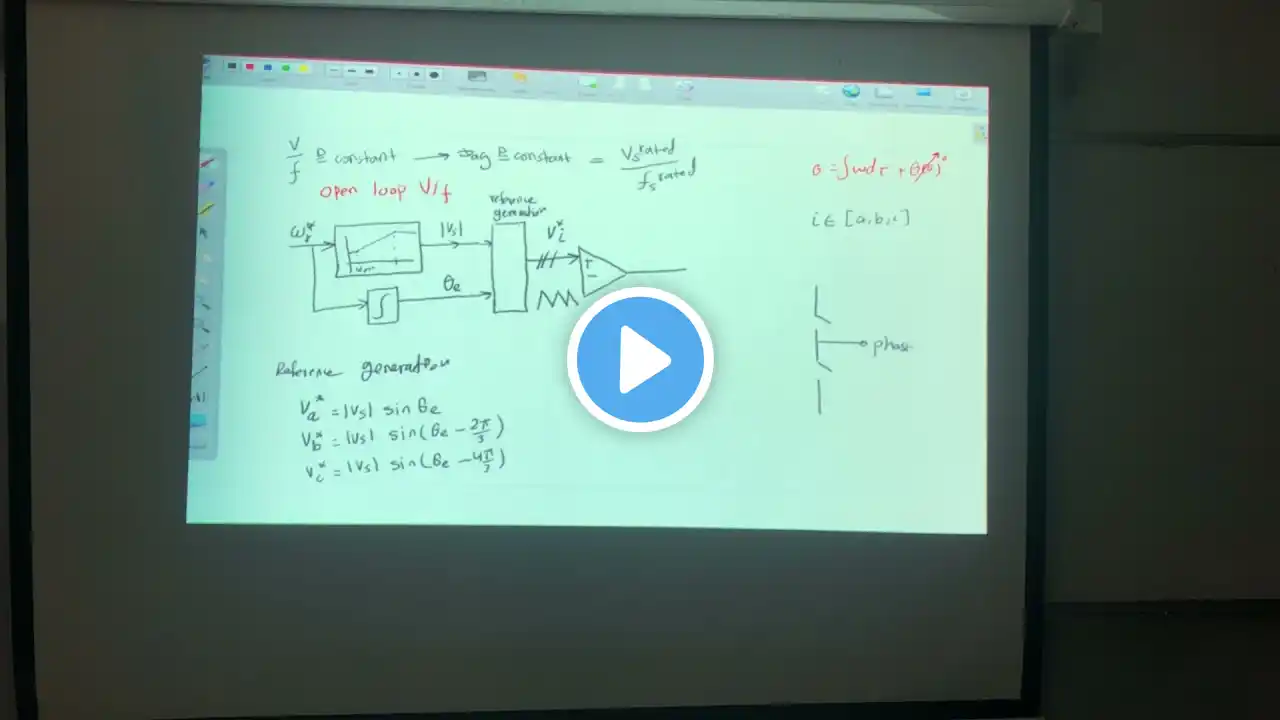 V/f ≅ constant → ≅ constant = Vs^rated / fs^rated
open loop V/f
θ = ∫ωdτ + θ(0)^0
i ∈ [a,b,c]
reference generation
ω* |Vs| Vi*
∫ θe
+
−
phase
Reference generation
Va* = |Vs| sin θe
Vb* = |Vs| sin(θe − 2π/3)
Vc* = |Vs| sin(θe − 4π/3)